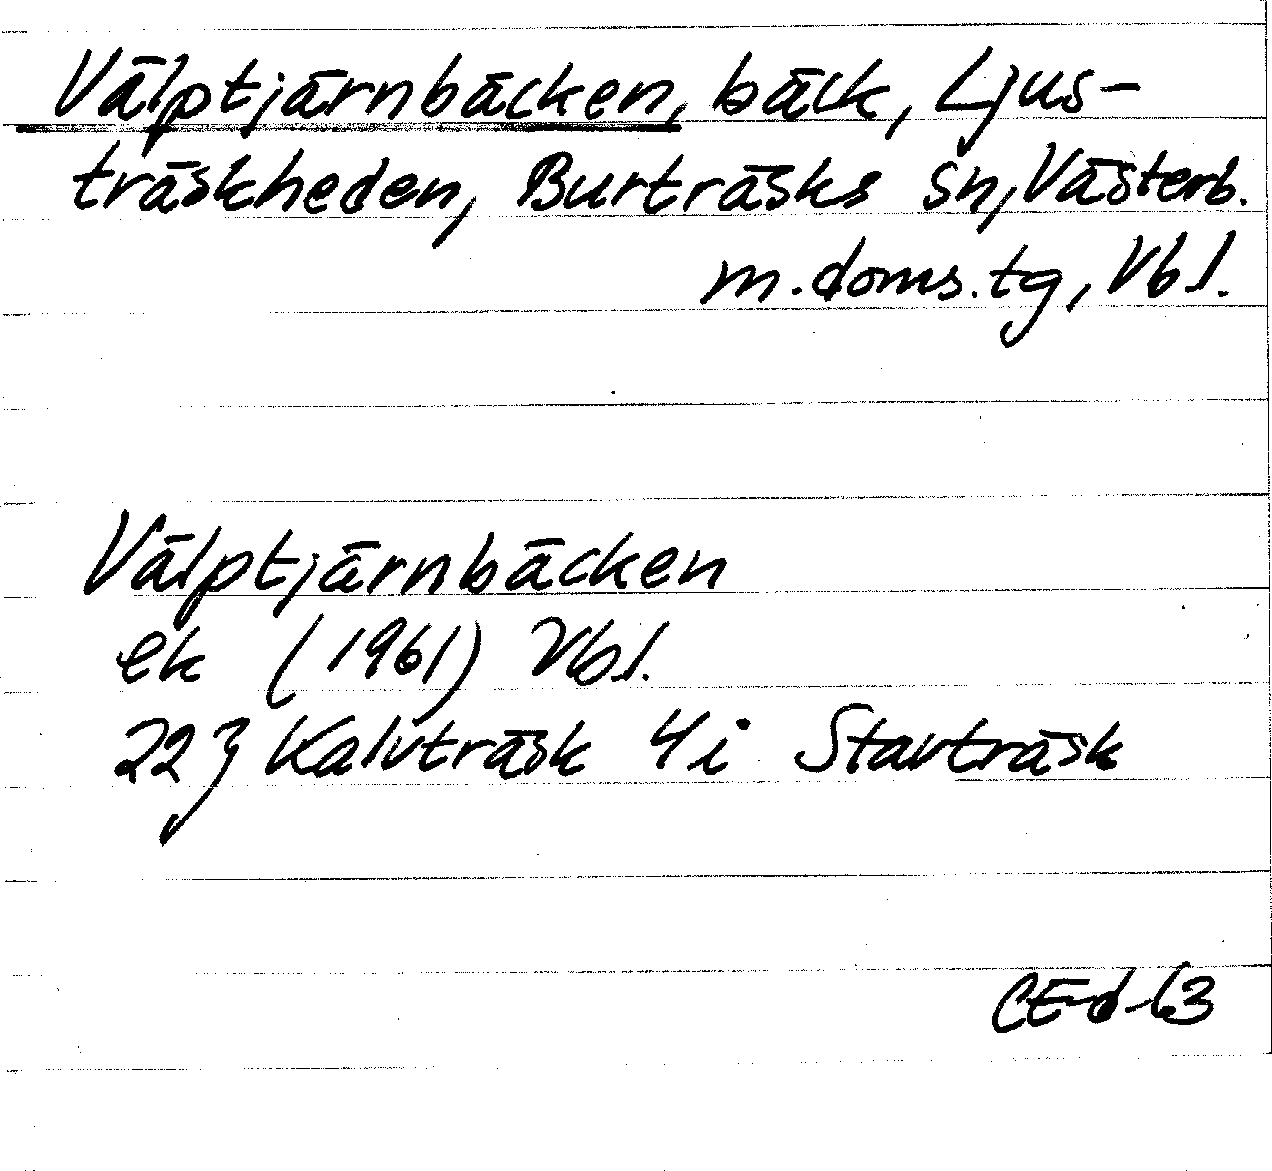 Välptjärnbäcken, bäck, Ljus-
träskheden, Burträsks sn, Västerb.
m. doms. tg, Vbl.
Välptjärnbäcken
ek (1961) Vbl.
22 J Kalvträsk 4i Stavträsk
CEd-63